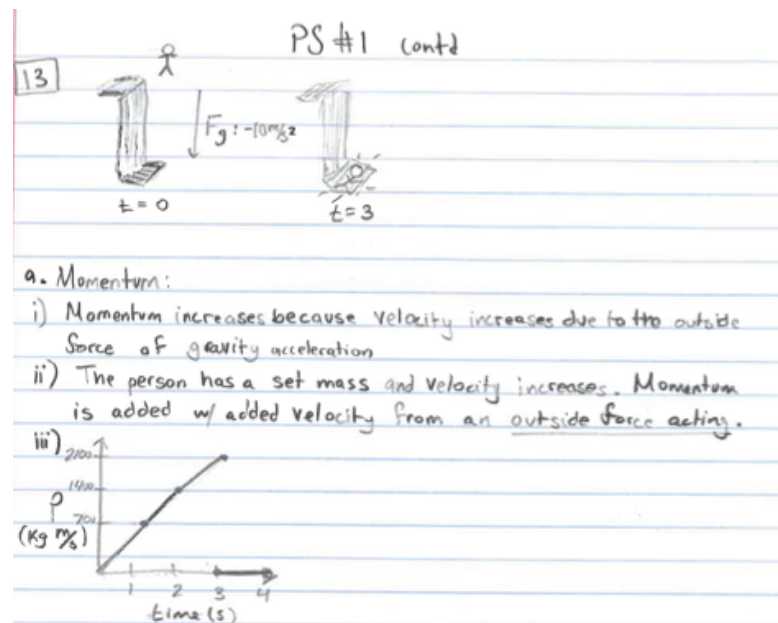 PS #1 contd
13
Fg: -10m/s²
t=0
t=3
a. Momentum:
i) Momentum increases because velocity increases due to the outside
force of gravity acceleration
ii) The person has a set mass and velocity increases. Momentum
is added w/ added velocity from an outside force acting.
iii)
2100
1400
700
P
(Kg m/s)
1 2 3 4
time (s)